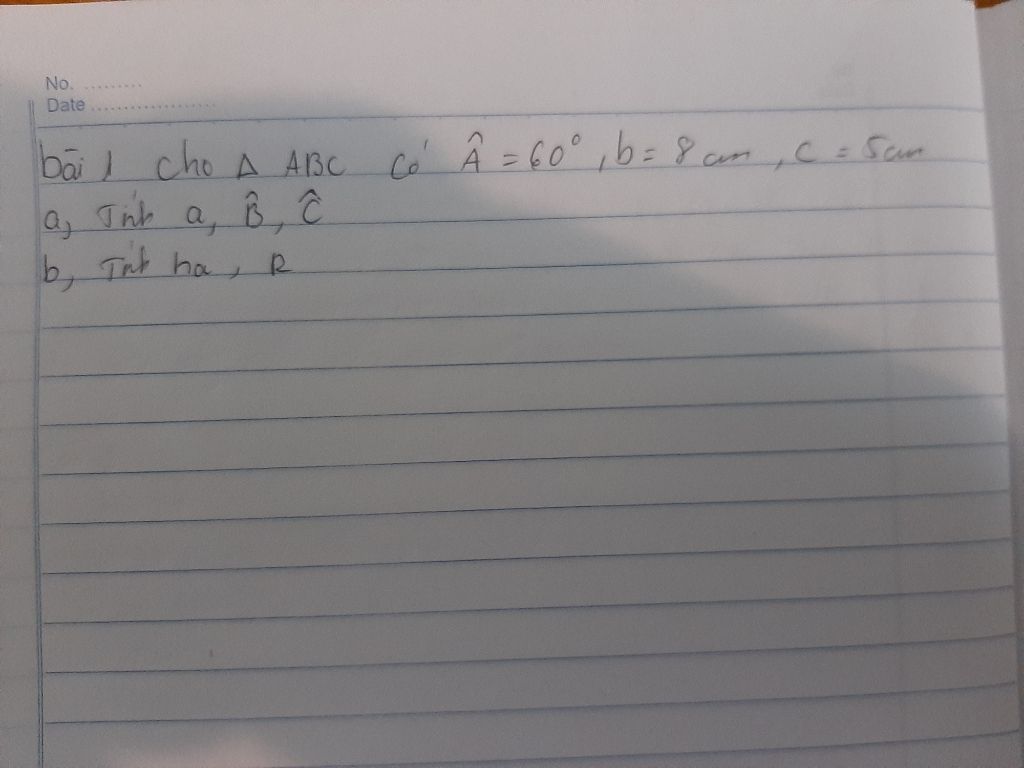 No. ..........
Date ......................
bài 1 cho Δ ABC có Â = 60°, b = 8 cm, c = 5cm
a, Tính a, B̂, Ĉ
b, Tính ha, R